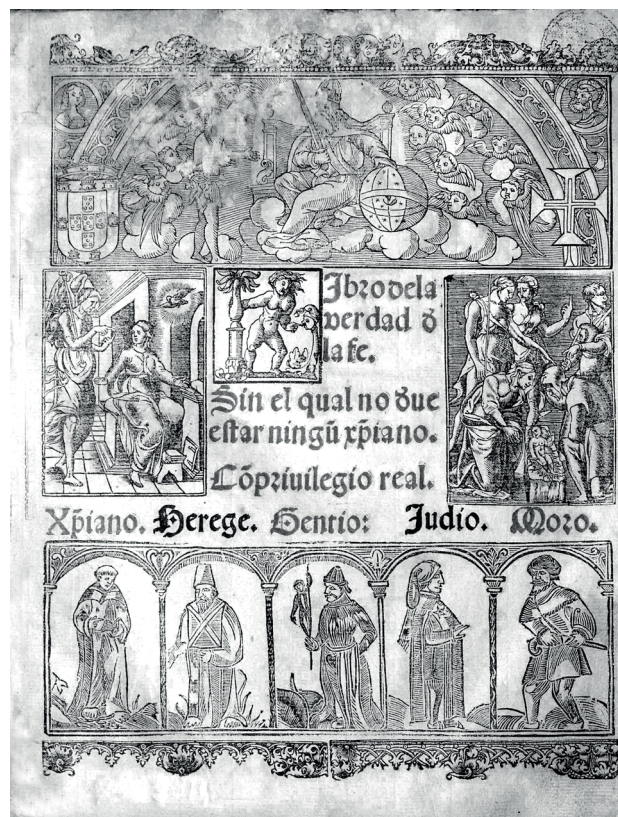 Libro dela
verdad đ
la fe.
Sin el qual no đue
estar ningū xp̄iano.
Cōpriuilegio real.
Xp̄iano. Herege. Gentio: Judio. Moro.